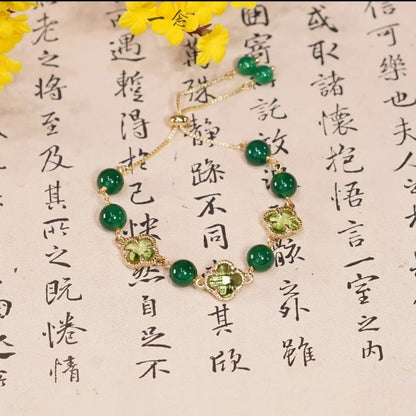 一念
信可樂也夫
或取諸懷抱悟言一室之内
寄託放骸之外雖
萬殊静躁不同其欣
遇蹔得於己快然自足不
老之将至及其所之既惓情